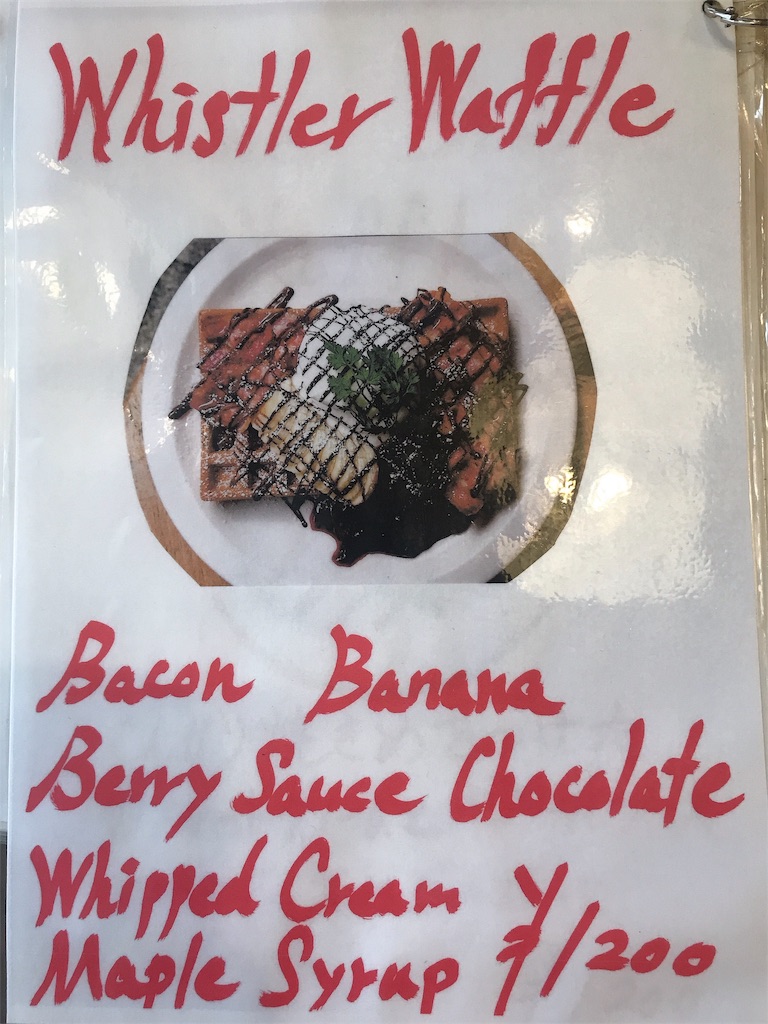 Whistler Waffle
Bacon Banana
Berry Sauce Chocolate
Whipped Cream
Maple Syrup ¥1200